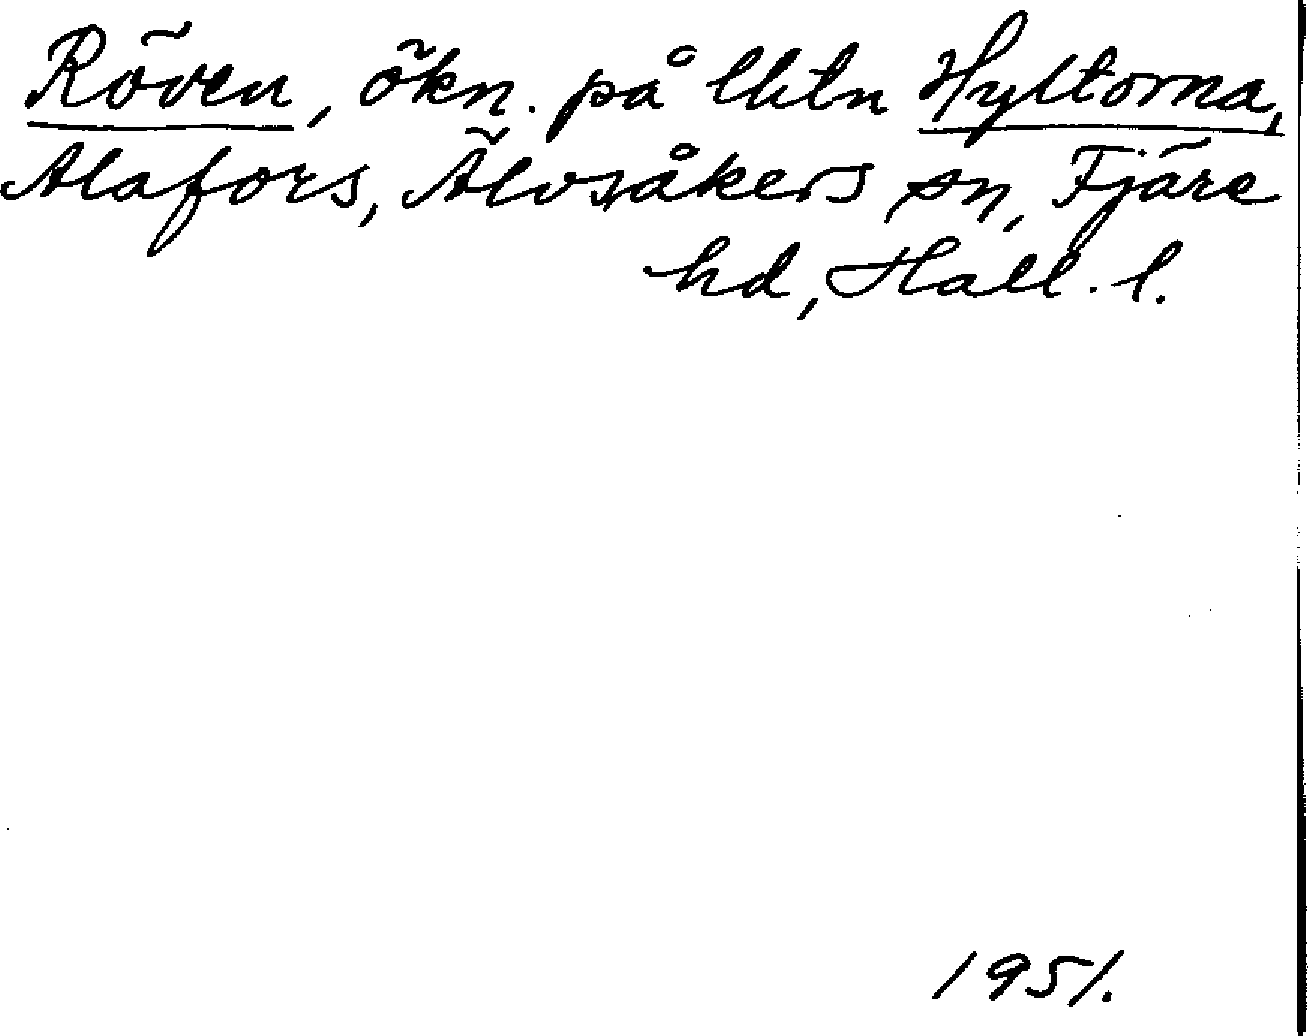 Röven, ökn. på lhtn Hyltorna,
Alafors, Älvsåkers sn, Fjäre
hd, Hall. l.
1951.